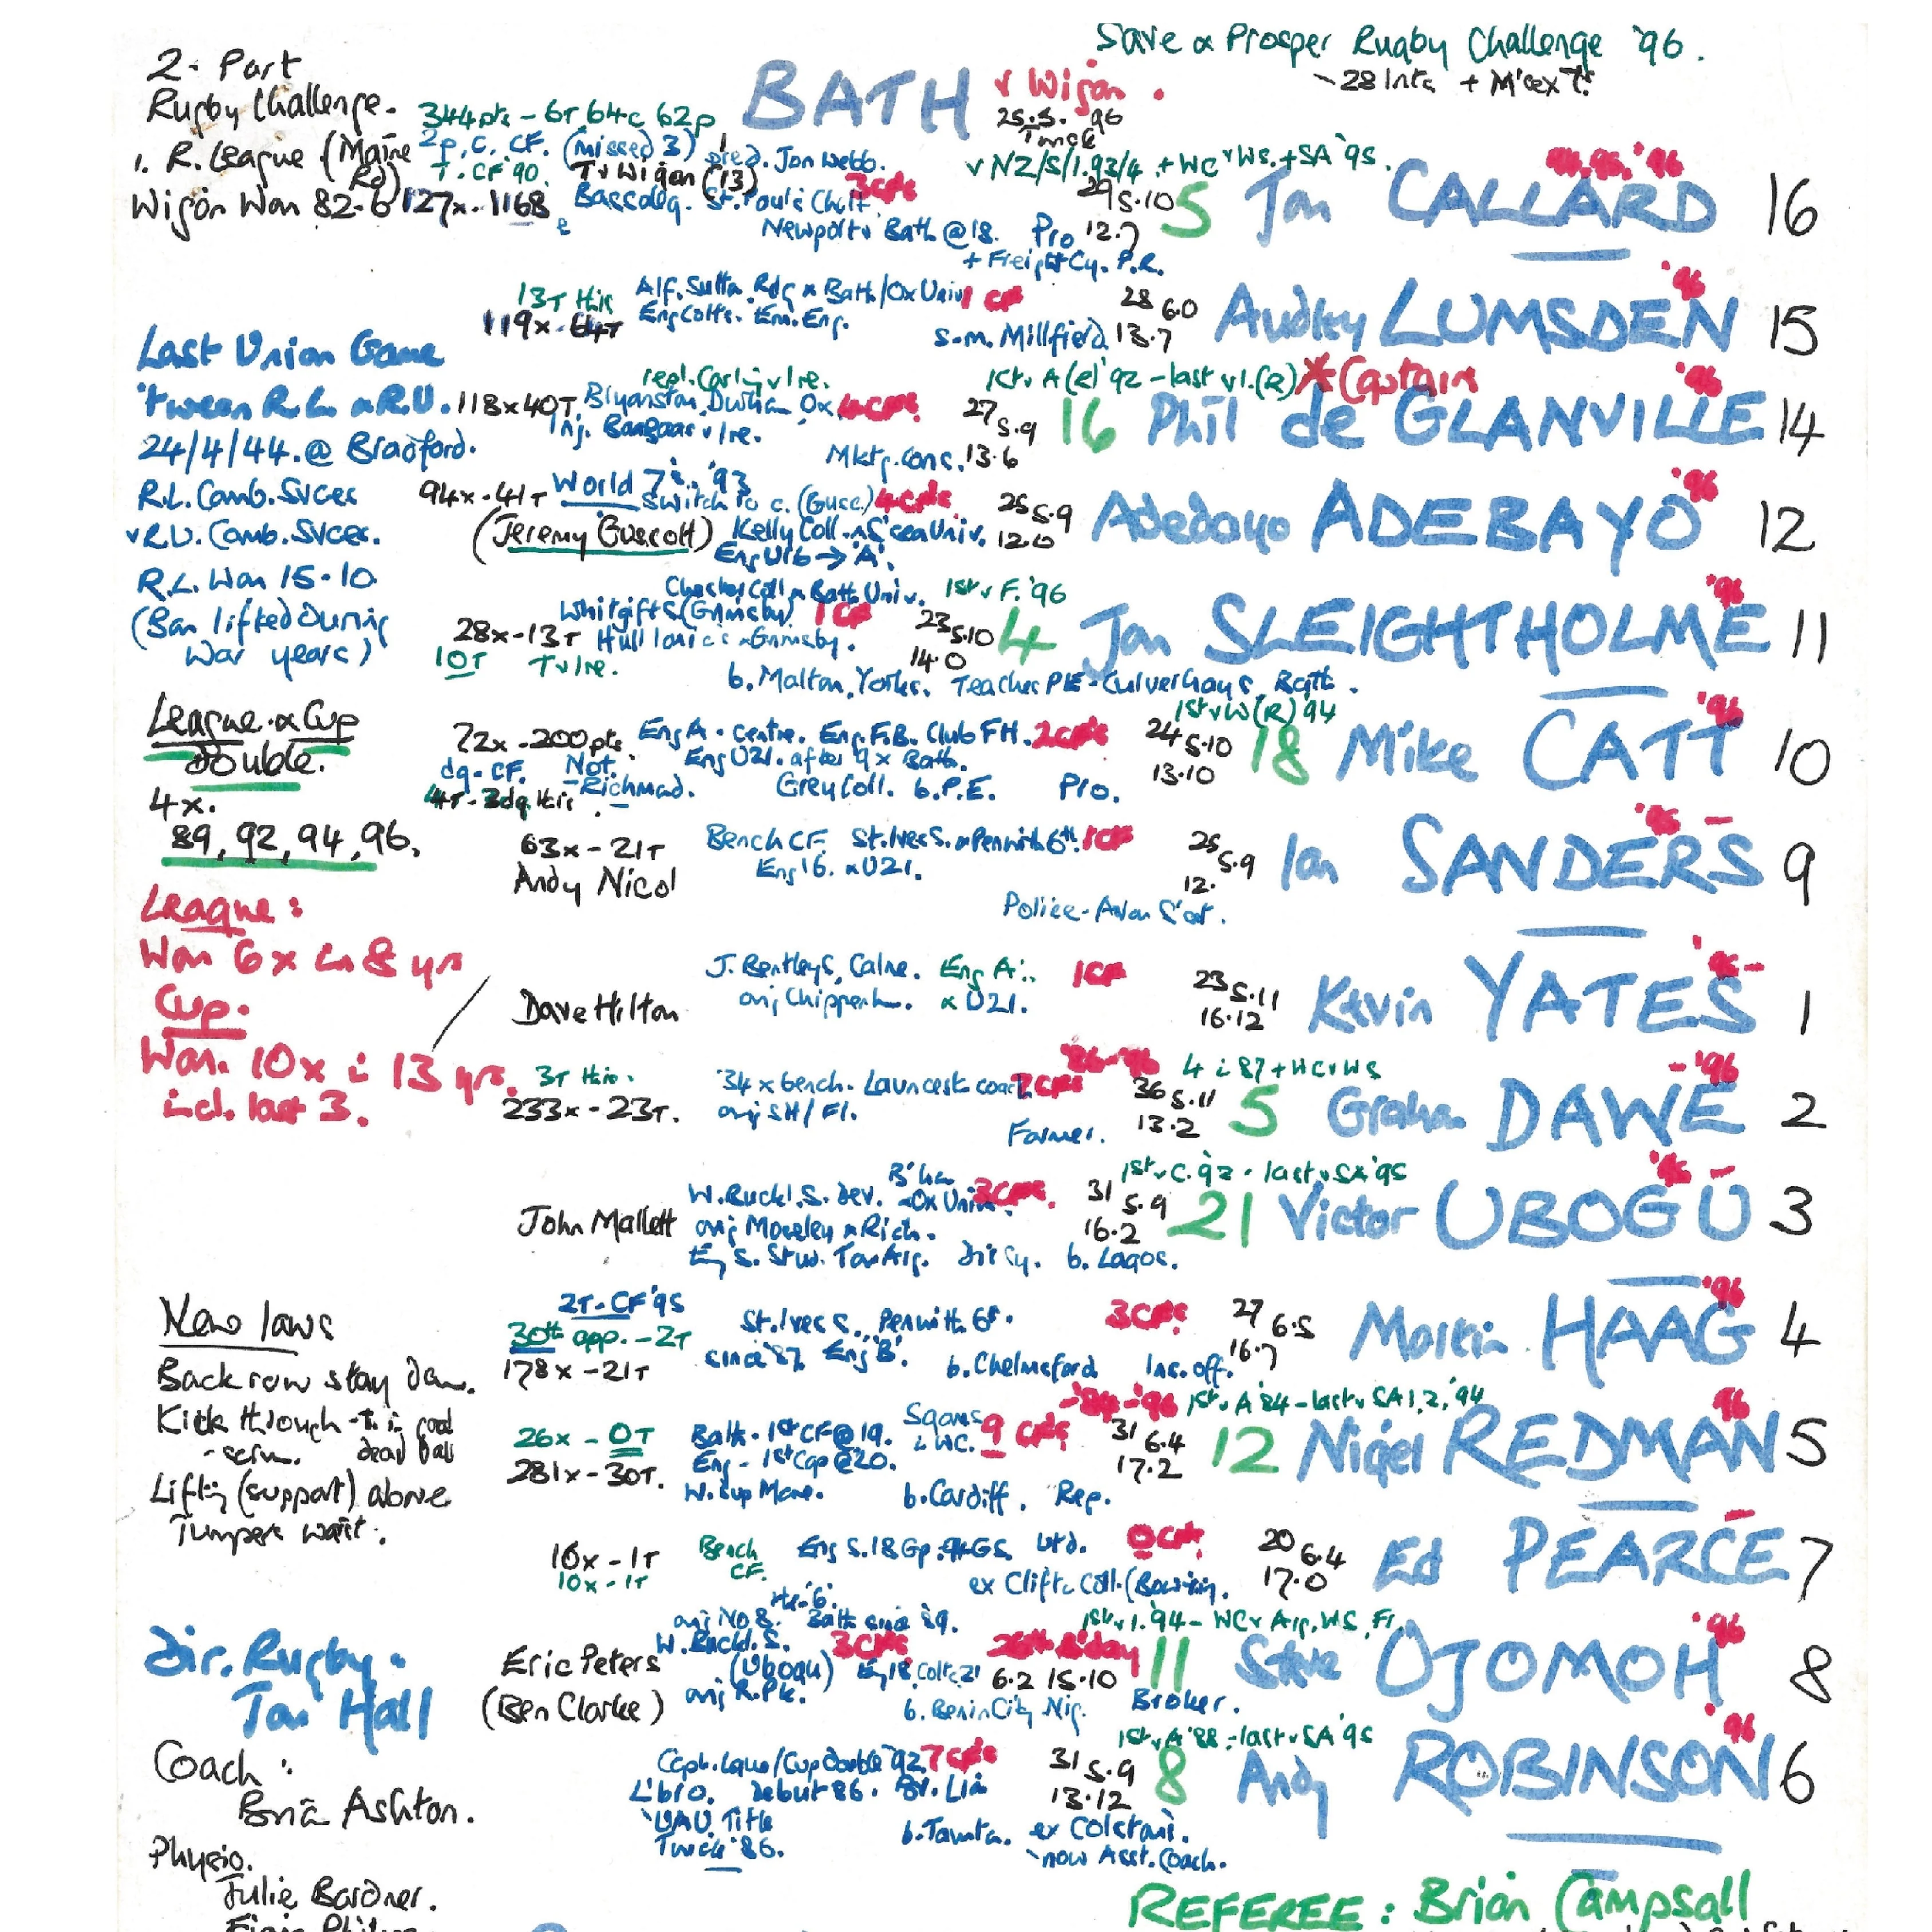 Save & Prosper Rugby Challenge '96.
- 28 Ints + M'sex 7s
2-Part
Rugby Challenge.
1. R. League (Maine Rd)
Wigan Won 82-6
BATH v Wigan.
25.5.96
Twick
344pts - 6T 64c 62p
2p, C. CF. (missed 3) pred. Jon Webb.
T. CF '90. T v Wigan (13)
127x. 1168
Bassaleg. St. Paul's Chelt. 3 Cps
Newport & Bath @ 18. Pro
+ Freight Cy. P.R.
v NZ/S/1.93/4. + WC v WS. + SA '95.
29 5.10
12.7
5 Jon CALLARD 16
'96
13T this
119x - 64T
Alf. Sutton Rdg & Bath/Ox Univ 1 CF
Eng Colts. Em. Eng.
S-m. Millfield
28 6.0
13.7
Audley LUMSDEN 15
'96
Last Union Game
'tween R.L. & R.U.
24/4/44. @ Bradford.
R.L. Comb. Svces
v R.U. Comb. Svces.
R.L. Won 15-10
(Ban lifted During
War years)
repl. Carling v Ire.
1st v A (R) '92 - last v I. (R) * Captain
118x 40T. Bryanston. Durham Ox 4 CPS
Inj. v Ire.
Mktg. cons.
27 5.9
13.6
16 Phil de GLANVILLE 14
'96
94x - 41T World 7s. '93
Switch to c. (Gusc.) 4 CPS
(Jeremy Guscott) Kelly Coll. & S'sea Univ.
Eng U16 → 'A'.
25 5.9
12.0
Adedayo ADEBAYO 12
'96
Chester Coll & Bath Univ. 1st v F. '96
Whitgift S (Grimsby) 1 CP
28x - 13T Hull Ionians & Grimsby.
10T T v Ire.
b. Malton, Yorks. Teacher PE - Culverhay S. Bath.
23 5.10
14.0
4 Jon SLEIGHTHOLME 11
'96
League & Cup
double.
4x.
89, 92, 94, 96.
1st v W (R) '94
72x - 200 pts Eng A - centre. Eng. F.B. Club FH. 2 CPS
dg - CF. Not. Eng U21. after 9 x Bath.
- Richmond. Grey Coll. b. P.E. Pro.
4T - 3dg this.
24 5.10
13.10
18 Mike CATT 10
'96
63x - 21T
Andy Nicol
Bench CF. St. Ives S. & Penwith 6th. 1 CP
Eng 16. & U21.
Police - Avon S'set.
25 5.9
12.
Ian SANDERS 9
League:
Won 6x in 8 yrs
Cup.
Won. 10x in 13 yrs.
incl. last 3.
Dave Hilton
J. Bentley S, Calne. Eng A. 1 CP
orig Chippenh. & U21.
23 5.11
16.12
Kevin YATES 1
3T this.
233x - 23T.
'34 x bench. Launcest. coach 7 CPS
orig SH/Fl.
Farmer.
'86-'96 4 in 87 + WC v WS
36 5.11
13.2
5 Graham DAWE 2
- '96
John Mallett
W. Buckl. S. Dev. B'ham & Ox Univ. 3 CPS
orig Moseley & Rich.
Eng S. Stud. Tour Arg. Dir Cy. b. Lagos.
1st v C. '92 - last v SA '95
31 5.9
16.2
21 Victor UBOGU 3
New laws
Back row stay down.
Kick through
- scrum. dead ball
Lifting (support) above
Jumpers waist.
2T. CF '95
30th app. - 2T
178x - 21T
St. Ives S. Penwith 6th.
since '87. Eng 'B'.
b. Chelmsford Ins. off.
3 CPS
27 6.5
16.7
Martin HAAG 4
'96
'84-'96 1st v A '84 - last v SA 1, 2, '94
26x - 0T
281x - 30T.
Bath - 1st CF @ 19. Squads in WC. 9 CPS
Eng - 1st Cap @ 20.
W. Cup Man. b. Cardiff. Rep.
31 6.4
17.2
12 Nigel REDMAN 5
96
16x - 1T
10x - 1T
Bench
CF.
Eng S. 18 Gp. Utd. 0 CPS
ex Clifton Coll.
20 6.4
17.0
Ed PEARCE 7
Dir. Rugby.
Jon Hall
Eric Peters
(Ben Clarke)
orig No 8. Bath since '89.
W. Buckl. S. (Ubogu) 3 CPS
Eng 18 Colts 21
orig R. Pk.
b. Benin City Nig. Broker.
1st v I. '94 - WC v Arg, WS, Fr.
26th B'day
6.2 15.10
11 Steve OJOMOH 8
'96
Coach:
Brian Ashton.
Capt. League/Cup double '92 7 CPS
L'boro. Debut 86. Br. Lion
UAU Title
Twick '86.
b. Taunton. ex Colstons.
now Asst. Coach.
1st v A '88 - last v SA '95
31 5.9
13.12
8 Andy ROBINSON 6
'96
Physio.
Julie Bardner.
REFEREE: Brian Campsall